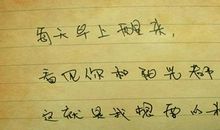 每天早上醒来,
看见你和阳光都
这就是我想要的未